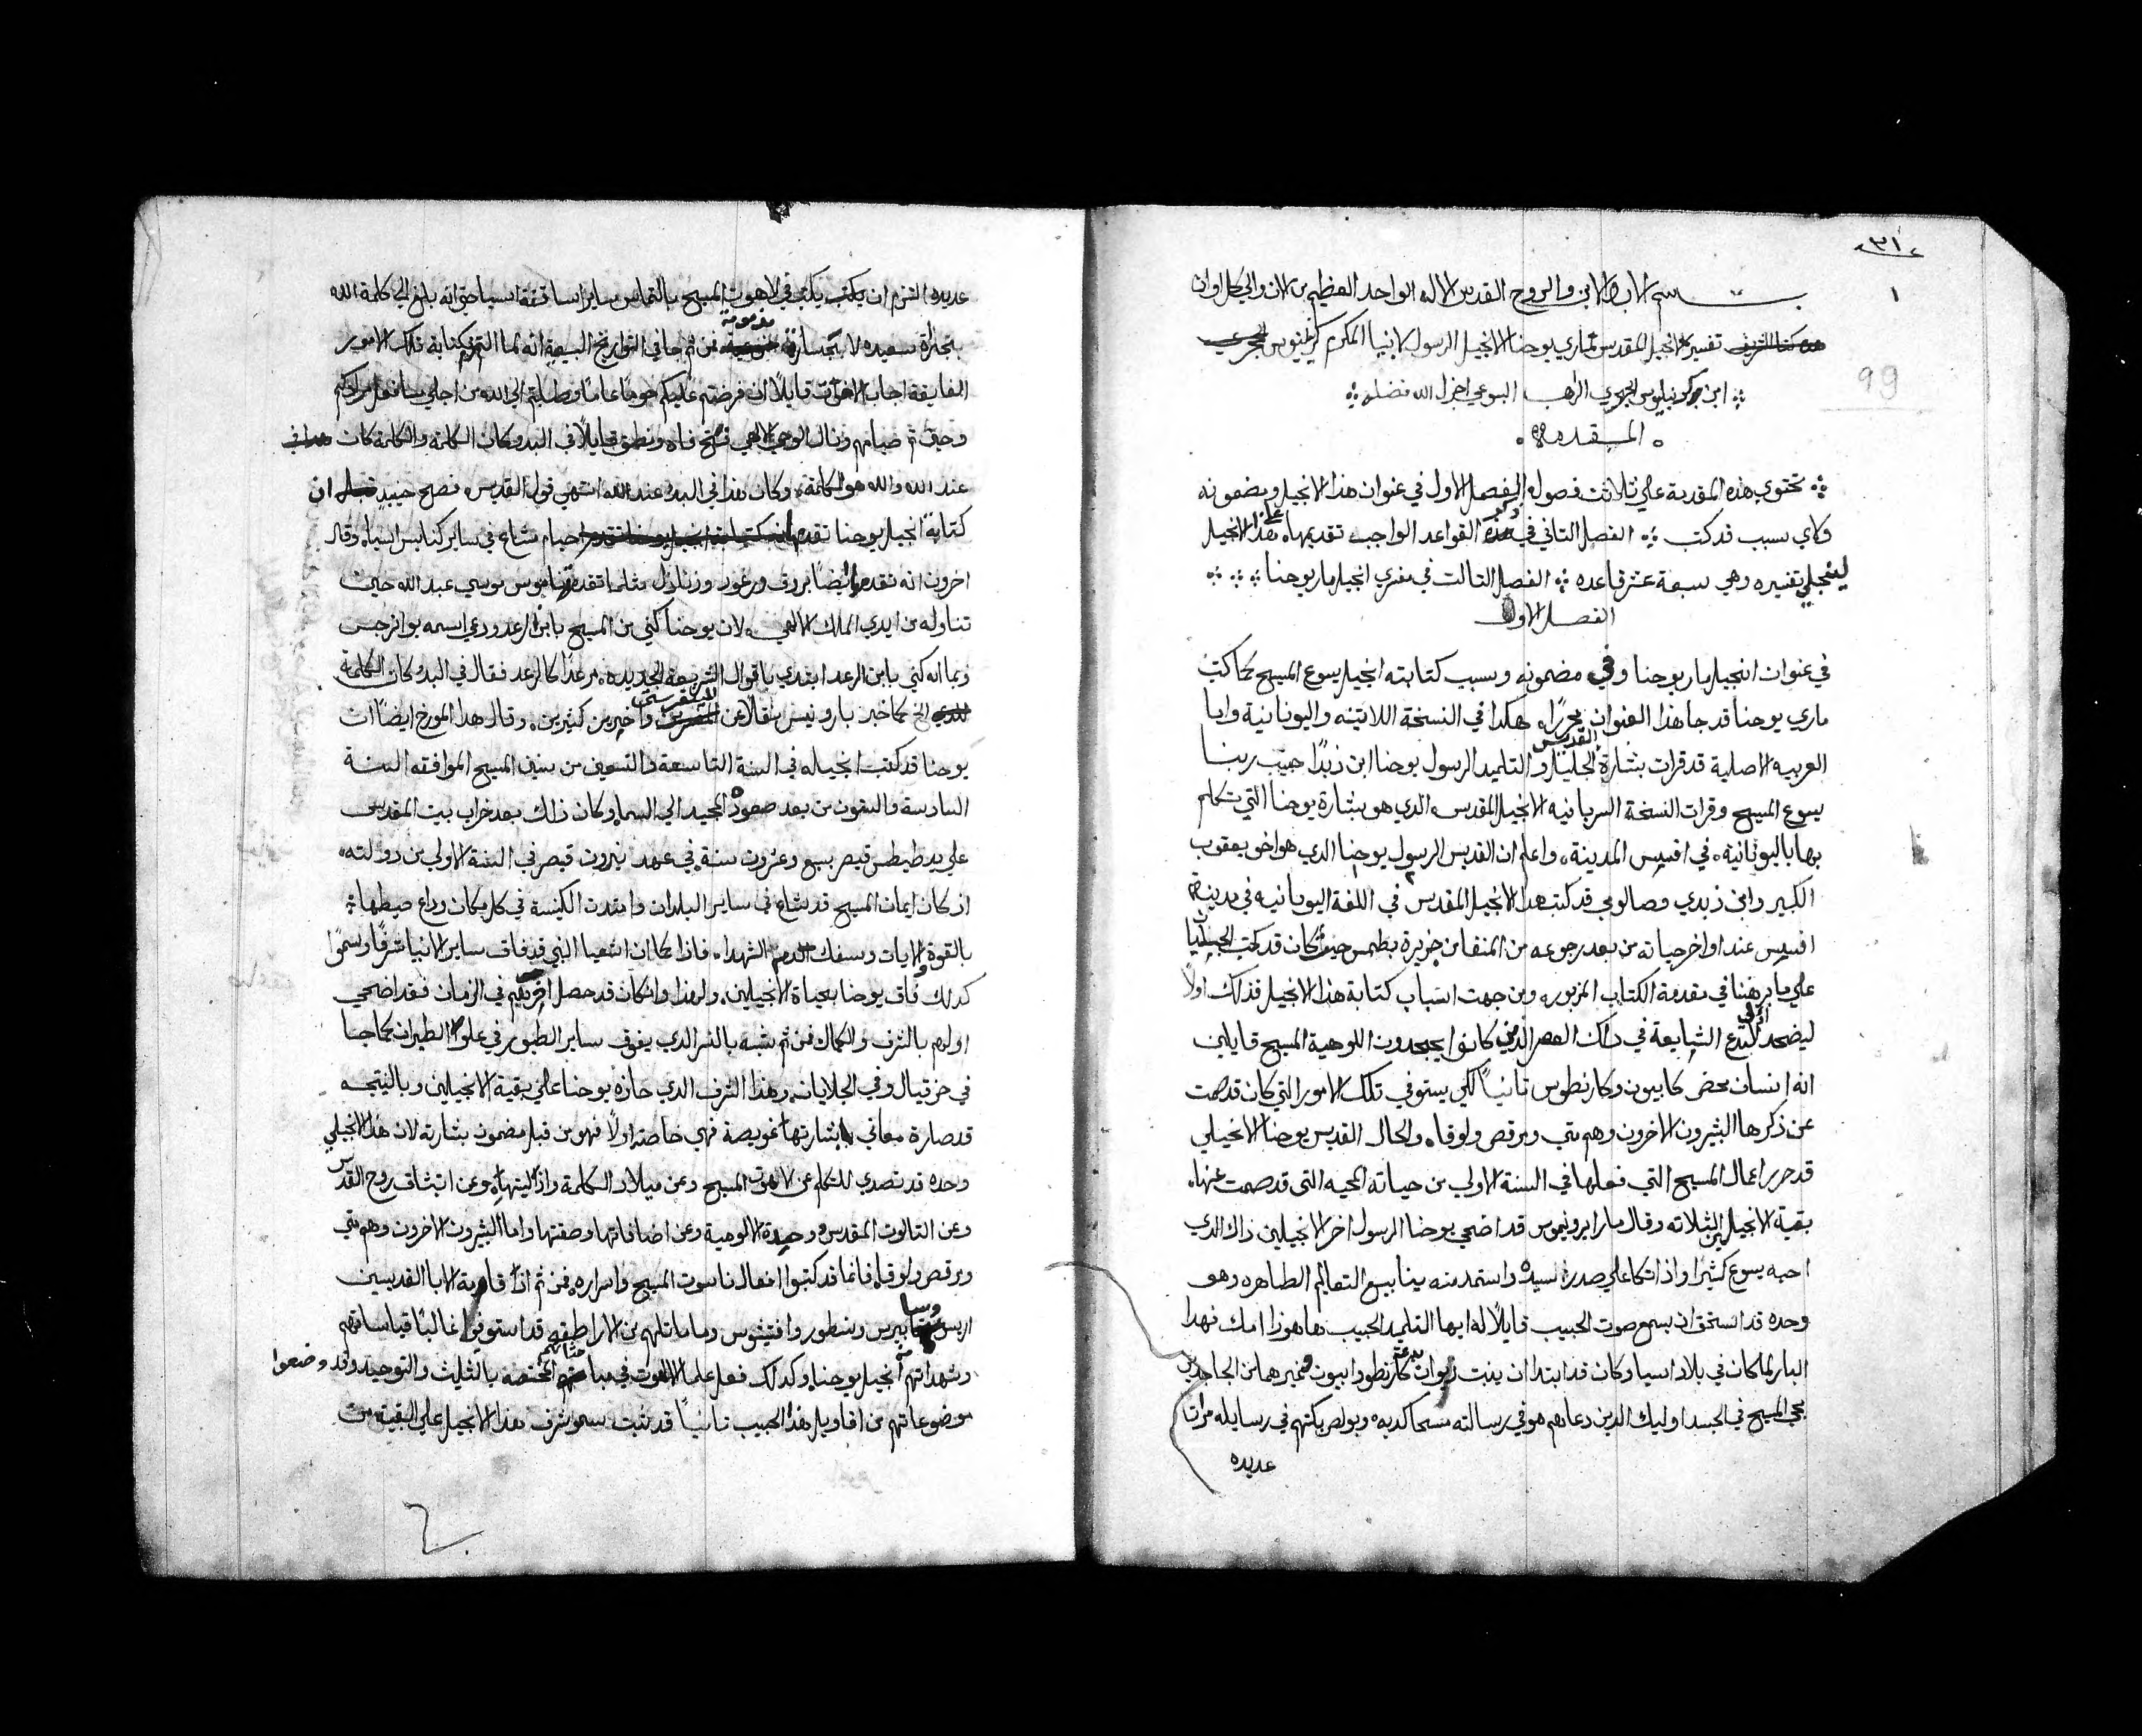 ٣١
١
99
بسم الاب والابن والروح القدس الاله الواحد العظيم من الان والي كل اوان
تفسير الانجيل المقدس لماري يوحنا الانجيلي الرسول لابينا المكرم كرنيليوس
ابن كرنيليوس الحجري الراهب اليسوعي اجزل الله فضله
المقدمه
تحتوي هذه المقدمة علي ثلاثت فصول الفصل الاول في عنوان هذا الانجيل ومضمونه
ولاي سبب قد كتب الفصل التاني في ذكر القواعد الواجب تقديمها علي هذا الانجيل
لينجلي تفسيره وهي سبعة عشر قاعده الفصل التالت في مفسري انجيل مار يوحنا
الفصل الاول
في عنوان انجيل مار يوحنا وفي مضمونه وسبب كتابته انجيل يسوع المسيح كما كتب
ماري يوحنا قد جا هذا العنوان محررًا هكدا في النسخة اللاتينه واليونانية واما
العربيه الاصلية قد قرات بشارة القديس الجليل والتلميد الرسول يوحنا ابن زبدًا حبيب ربنا
يسوع المسيح وقرات النسخة السريانيه الانجيل المقدس الدي هو بشارة يوحنا التي تكلم
بها باليونانية في افسس المدينة واعلم ان القديس الرسول يوحنا الدي هو اخو يعقوب
الكبير وابن زبدي وصالومي قد كتب هدا الانجيل المقدس في اللغة اليونانيه في مدينة
افسس عند اواخر حياته من بعد رجوعه من المنفا من جزيرة بطمس حيث كان قد كتب الجليان
علي ما برهنا في مقدمة الكتاب المزبور ومن جهت اسباب كتابة هذا الانجيل فذلك اولاً
ليضحد البدع الشايعة في داك العصر الذين كانوا يجحدون اللوهية المسيح قايلين
انه انسان محض كابيون وكارنطوس تانيًا لكي يستوفي تلك الامور التي كان قد صمت
عن ذكرها البشيرون الاخرون وهم متي ومرقص ولوقا والحال القديس يوحنا الانجيلي
قد حرر اعمال المسيح التي فعلها في السنة الاولي من حياته المحيه التي قد صمت عنها
بقية الانجيليين الثلاثه وقال مار ايرونيموس قد اضحي يوحنا الرسول اخر الانجيلين ذاك الدي
احبه يسوع كثيرًا واذ اتكا علي صدر السيد واستمد منه ينابيع التعاليم الطاهره وهو
وحده قد استحق ان يسمع صوت الحبيب قايلاً له ايها التلميد الحبيب ها هوذا امك فهدا
البار لما كان في بلاد اسيا وكان قد ابتدا ان ينبت زيوان بدعة كارنطو وابيون وغيرهما من الجاحدين
مجي المسيح في الجسد اوليك الدين دعاهم هو في رسالته مسحا كدبه وبولص يكتهم في رسايله مرات
عديده
عديده التزم ان يكتب في لاهوت المسيح بالتماس ساير اساقفة اسيا حتي انه بلغ الي كلمة الله
بتجارة سعيده لا بتجسارة مذمومة فمن ثم جا في التواريخ البيعيه انه لما التزم بكتابة تلك الامور
الفايقة اجاب الاخوات قايلاً ان فرضتم عليكم صومًا عامًا وطلبتم الي الله من اجلي سافعل مرادكم
وحين تم صيامهم ونال الوحي الالهي فتح فاه ونطق قايلاً في البدو كان الكلمة والكلمة كان
عند الله والله هو الكلمة وكان هذا في البدء عند الله انتهي قول القديس فصح حينيدٍ ان
كتابة انجيل يوحنا تقدمها صيام مشاع في ساير كنايس اسيا وقال
اخرون انه تقدمها ايضًا بروق ورعود وزلازل مثلما تقدم ناموس موسي عبد الله حين
تناوله من ايدي الملك الالهي لان يوحنا كُني من المسيح بابن الرعد ودعي اسمه بوانرجس
وبما انه كني بابن الرعد ابتدي باقوال الشريعة الجديده مرعدًا كالرعد فقال في البدو كان الكلمة
الخ كما خبر بارونيس نقلاً عن واخرين كثيرين وقال هدا المورخ ايضًا ان
يوحنا قد كتب انجيله في السنة التاسعة والتسعين من سنين المسيح الموافقه السنة
السادسة والستون من بعد صعوده المجيد الي السما وكان ذلك بعد خراب بيت المقدس
علي يد طيطس قيصر بسبع وعشرون سنة في عهد نيرون قيصر في السنة الاولي من دولته
اذ كان ايمان المسيح قد شاع في ساير البلدان وامتدت الكنيسة في كل مكان وذاع صيطها
بالقوة والايات وسفك الدم الشهدا فاذا كما ان اشعيا النبي قد فاق ساير الانبيا شرفًا وسموًا
كدلك فاق يوحنا بقية الانجيلين ولهذا وان كان قد حصل اخرهم في الزمان فقد اضحي
اولهم بالشرف والكمال فمن ثم شُبه بالنسر الدي يفوق ساير الطيور في علو الطيران كما جا
في حزقيال وفي الجلايان وهذا الشرف الدي حازه يوحنا علي بقية الانجيلين وبالنتيجه
قد صارة معاني بشارتها غويصة فهي خاصته اولاً فهو من قبل مضمون بشارته لان هذا الانجيلي
وحده قد تصدي للتكلم عن لاهوت المسيح وعن ميلاد الكلمة وازليتها وعن انبثاق روح القدس
وعن التالوت المقدس وحيدة الالوهية وعن اضافاتها وصفتها واما البشيرون الاخرون وهم متي
ومرقص ولوقا فانما قد كتبوا افعال ناسوت المسيح واسراره فمن ثم اذ قاومة الابا القديسين
اريس وسابيريس ونسطور وافتيشوس وما ماتلهم من الاراطقه قد استوفوا غالبًا قياساتهم
وشهداتهم من انجيل يوحنا وكدلك فعل علما اللاهوت في المختصه بالثليث والتوحيد وقد وضعوا
موضوعاتهم من اقاويل هذا الحبيب تانيًا قد ثبت سمو شرف هذا الانجيل علي البقية من